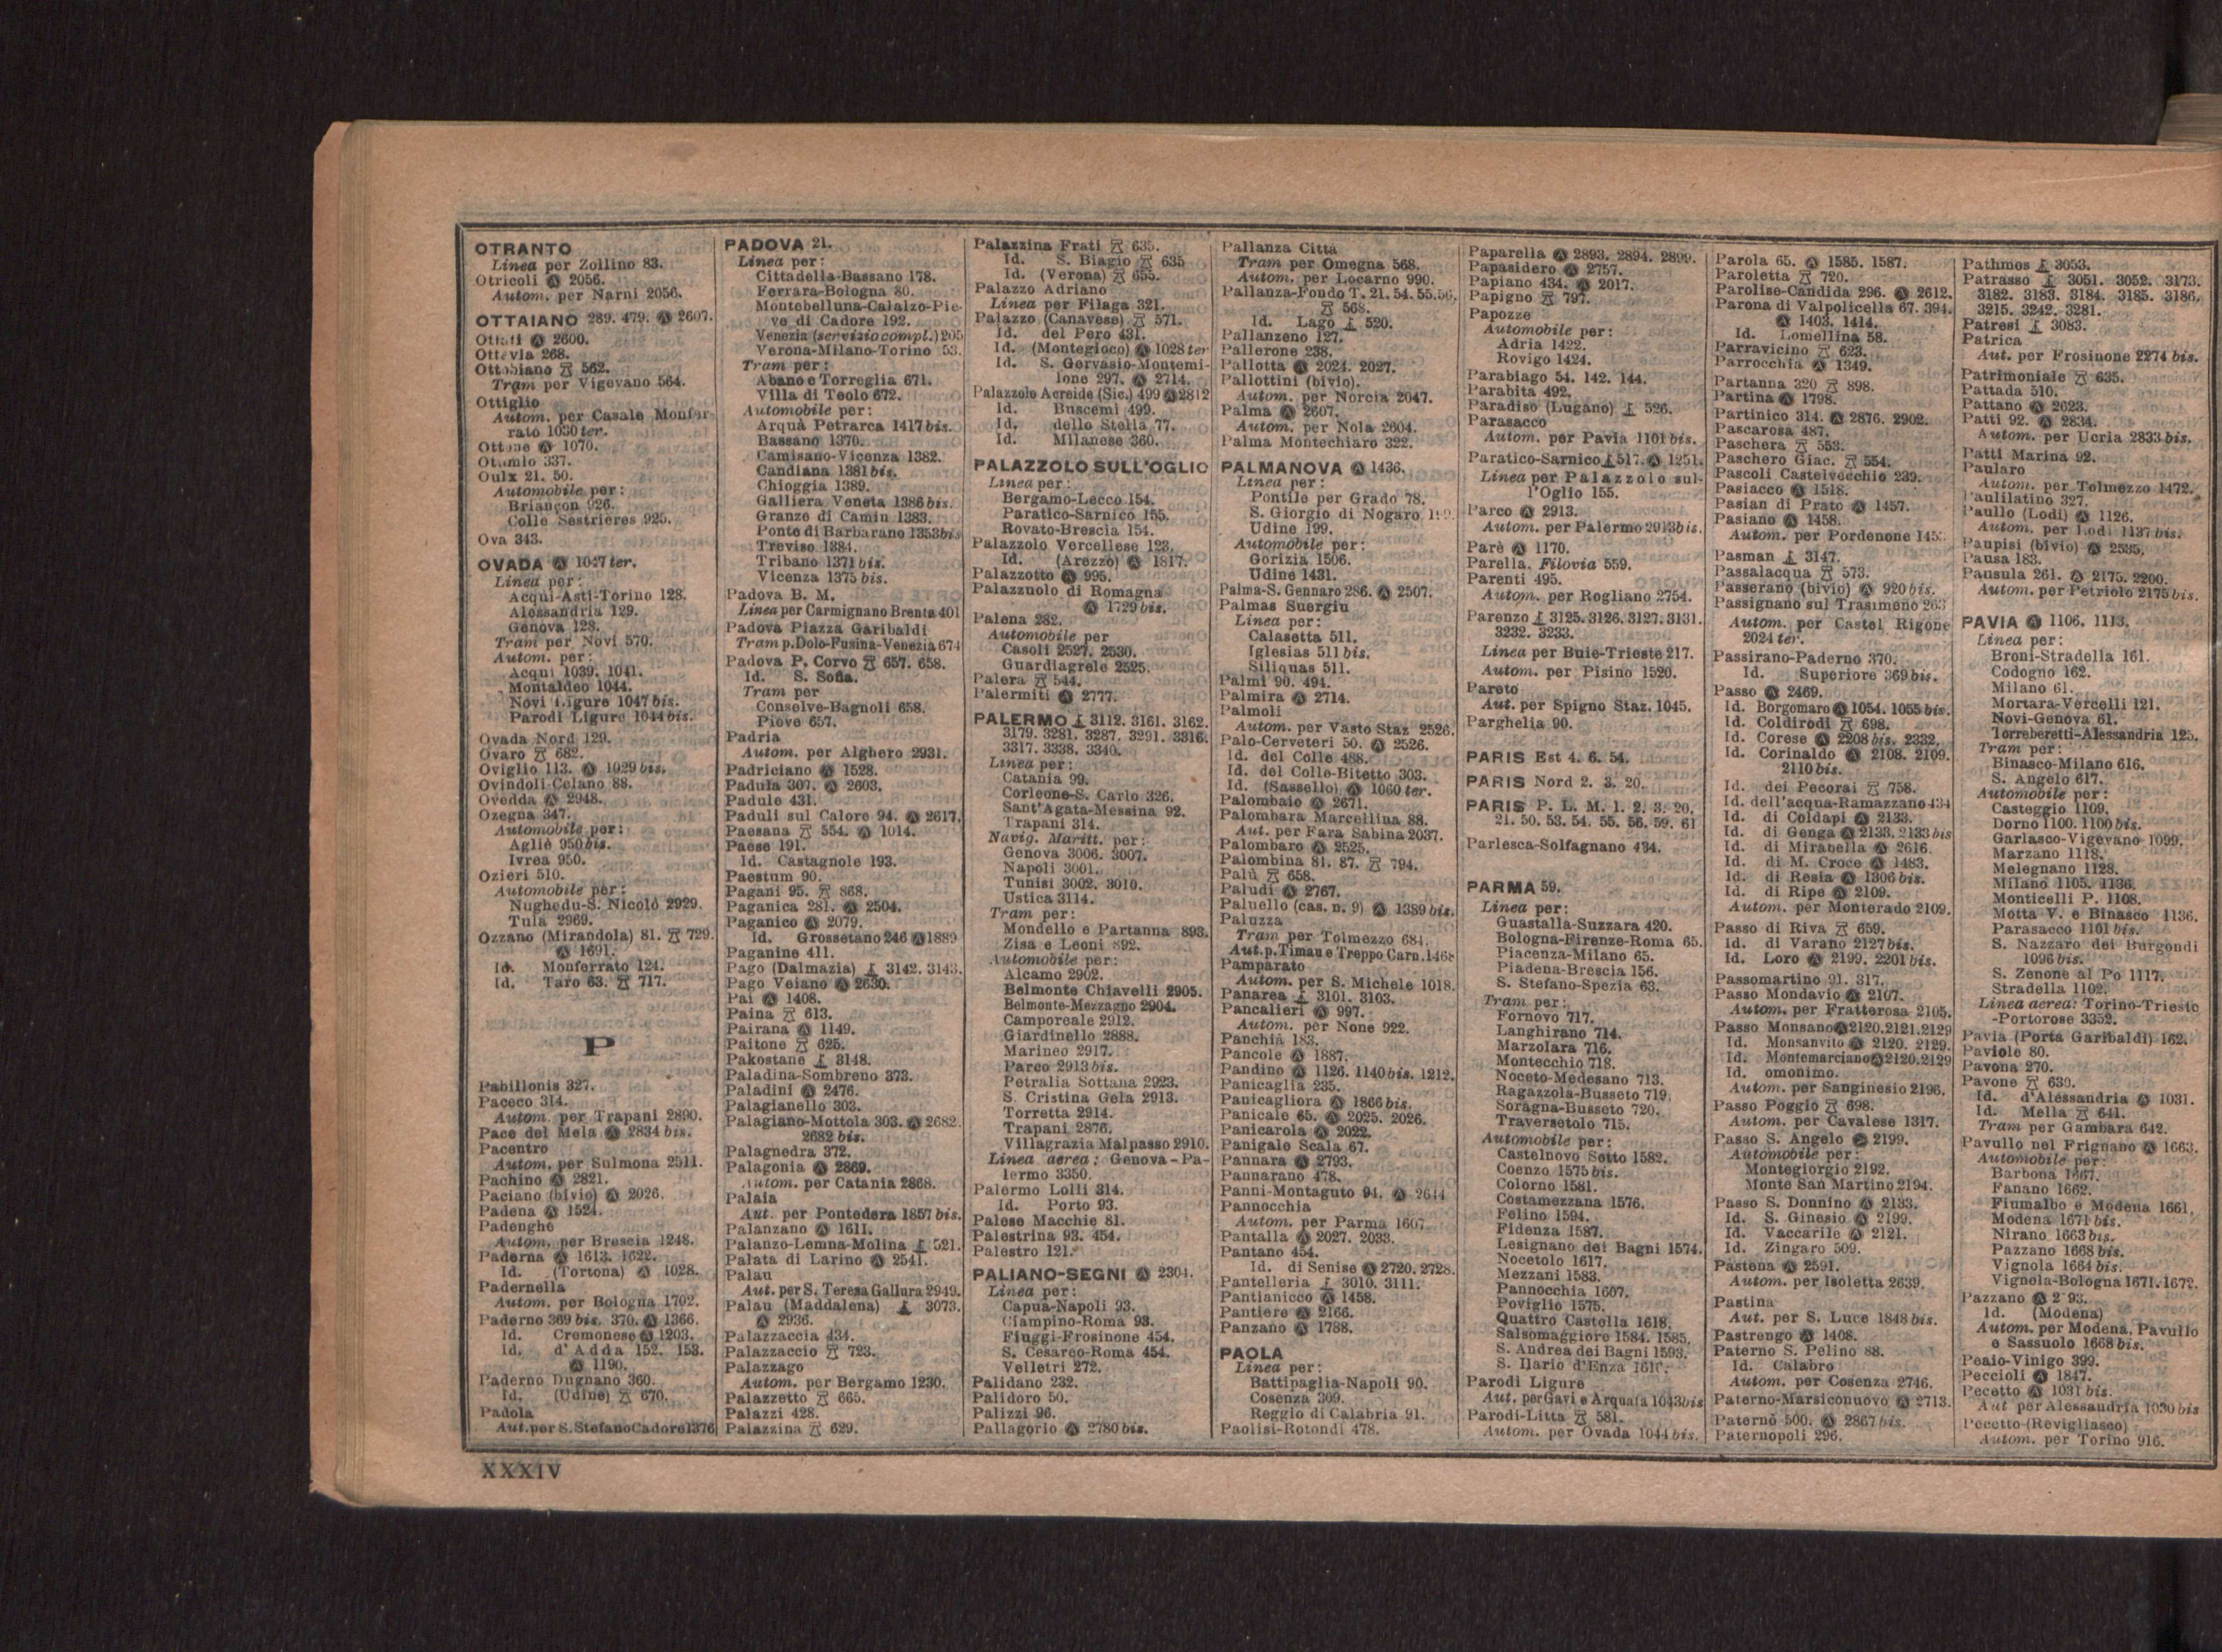 OTRANTO
Linea per Zollino 83.
Otricoli 2056.
Autom. per Narni 2056.
OTTAIANO 289. 479. 2607.
Ottati 2600.
Ottavia 268.
Ottobiano 562.
Tram per Vigevano 564.
Ottiglio
Autom. per Casale Monfer-
rato 1030 ter.
Ottone 1070.
Oulx 21. 50.
Automobile per:
Briançon 926.
Colle Sestrières 925.
Ova 343.
OVADA 1047 ter.
Linea per:
Acqui-Asti-Torino 128.
Alessandria 129.
Genova 128.
Tram per Novi 570.
Autom. per:
Acqui 1039. 1041.
Montaldeo 1044.
Novi Ligure 1047 bis.
Parodi Ligure 1044 bis.
Ovada Nord 129.
Ovaro 682.
Oviglio 113. 1029 bis.
Ovindoli-Celano 88.
Ovedda 2948.
Ozegna 347.
Automobile per:
Agliè 950 bis.
Ivrea 950.
Ozieri 510.
Automobile per:
Nughedu-S. Nicolò 2929.
Tula 2969.
Ozzano (Mirandola) 81. 729.
1691.
Id. Monferrato 124.
Id. Taro 63. 717.
P
Pabillonis 327.
Paceco 314.
Autom. per Trapani 2890.
Pace del Mela 2834 bis.
Pacentro
Autom. per Sulmona 2511.
Pachino 2821.
Paciano (bivio) 2026.
Padena 1524.
Padenghe
Autom. per Brescia 1248.
Paderna 1613. 1622.
Id. (Tortona) 1028.
Padernella
Autom. per Bologna 1702.
Paderno 369 bis. 370. 1366.
Id. Cremonese 1203.
Id. d'Adda 152. 153.
1190.
Paderno Dugnano 360.
Id. (Udine) 670.
Padola
Aut. per S. Stefano Cadore 1376
PADOVA 21.
Linea per:
Cittadella-Bassano 178.
Ferrara-Bologna 80.
Montebelluna-Calalzo-Pie-
ve di Cadore 192.
Venezia (servizio compl.) 205
Verona-Milano-Torino 53.
Tram per:
Abano e Torreglia 671.
Villa di Teolo 672.
Automobile per:
Arquà Petrarca 1417 bis.
Bassano 1370.
Camisano-Vicenza 1382.
Candiana 1381 bis.
Chioggia 1389.
Galliera Veneta 1386 bis.
Granze di Camin 1383.
Ponte di Barbarano 1353 bis
Treviso 1384.
Tribano 1371 bis.
Vicenza 1375 bis.
Padova B. M.
Linea per Carmignano Brenta 401
Padova Piazza Garibaldi
Tram p. Dolo-Fusina-Venezia 674
Padova P. Corvo 657. 658.
Id. S. Sofia.
Tram per
Conselve-Bagnoli 658.
Piove 657.
Padria
Autom. per Alghero 2931.
Padriciano 1528.
Padula 307. 2603.
Padule 431.
Paduli sul Calore 94. 2617.
Paesana 554. 1014.
Paese 191.
Id. Castagnole 193.
Paestum 90.
Pagani 95. 868.
Paganica 281. 2504.
Paganico 2079.
Id. Grossetano 246 1889
Paganine 411.
Pago (Dalmazia) 3142. 3143.
Pago Veiano 2630.
Pai 1408.
Paina 613.
Pairana 1149.
Paitone 625.
Pakostane 3148.
Paladina-Sombreno 373.
Paladini 2476.
Palagianello 303.
Palagiano-Mottola 303. 2682.
2682 bis.
Palagnedra 372.
Palagonia 2869.
Autom. per Catania 2868.
Palaia
Aut. per Pontedera 1857 bis.
Palanzano 1611.
Palanzo-Lemna-Molina 521.
Palata di Larino 2541.
Palau
Aut. per S. Teresa Gallura 2949.
Palau (Maddalena) 3073.
2936.
Palazzaccia 434.
Palazzaccio 723.
Palazzago
Autom. per Bergamo 1230.
Palazzetto 665.
Palazzi 428.
Palazzina 629.
Palazzina Frati 635.
Id. S. Biagio 635
Id. (Verona) 655.
Palazzo Adriano
Linea per Filaga 321.
Palazzo (Canavese) 571.
Id. del Pero 431.
Id. (Montegioco) 1028 ter
Id. S. Gervasio-Montemi-
lone 297. 2714.
Palazzolo Acreide (Sic.) 499 2812
Id. Buscemi 499.
Id. dello Stella 77.
Id. Milanese 360.
PALAZZOLO SULL'OGLIO
Linea per:
Bergamo-Lecco 154.
Paratico-Sarnico 155.
Rovato-Brescia 154.
Palazzolo Vercellese 123.
Id. (Arezzo) 1817.
Palazzotto 995.
Palazzuolo di Romagna
1729 bis.
Palena 282.
Automobile per
Casoli 2527. 2530.
Guardiagrele 2525.
Palera 544.
Palermiti 2777.
PALERMO 3112. 3161. 3162.
3179. 3281. 3287. 3291. 3316.
3317. 3338. 3340.
Linea per:
Catania 99.
Corleone-S. Carlo 326.
Sant'Agata-Messina 92.
Trapani 314.
Navig. Maritt. per:
Genova 3006. 3007.
Napoli 3001.
Tunisi 3002. 3010.
Ustica 3114.
Tram per:
Mondello e Partanna 893.
Zisa e Leoni 892.
Automobile per:
Alcamo 2902.
Belmonte Chiavelli 2905.
Belmonte-Mezzagno 2904.
Camporeale 2912.
Giardinello 2888.
Marineo 2917.
Parco 2913 bis.
Petralia Sottana 2923.
S. Cristina Gela 2913.
Torretta 2914.
Trapani 2876.
Villagrazia Malpasso 2910.
Linea aerea: Genova-Pa-
lermo 3350.
Palermo Lolli 314.
Id. Porto 93.
Palese Macchie 81.
Palestrina 93. 454.
Palestro 121.
PALIANO-SEGNI 2304.
Linea per:
Capua-Napoli 93.
Ciampino-Roma 93.
Fiuggi-Frosinone 454.
S. Cesareo-Roma 454.
Velletri 272.
Palidano 232.
Palidoro 50.
Palizzi 96.
Pallagorio 2780 bis.
Pallanza Città
Tram per Omegna 568.
Autom. per Locarno 990.
Pallanza-Fondo T. 21. 54. 55. 56.
568.
Id. Lago 520.
Pallanzeno 127.
Pallerone 238.
Pallotta 2024. 2027.
Pallottini (bivio).
Autom. per Norcia 2047.
Palma 2607.
Autom. per Nola 2604.
Palma Montechiaro 322.
PALMANOVA 1436.
Linea per:
Pontile per Grado 78.
S. Giorgio di Nogaro
Udine 199.
Automobile per:
Gorizia 1506.
Udine 1431.
Palma-S. Gennaro 286. 2507.
Palmas Suergiu
Linea per:
Calasetta 511.
Iglesias 511 bis.
Siliquas 511.
Palmi 90. 494.
Palmira 2714.
Palmoli
Autom. per Vasto Staz 2526.
Palo-Cerveteri 50. 2526.
Id. del Colle 488.
Id. del Colle-Bitetto 303.
Id. (Sassello) 1060 ter.
Palombaio 2671.
Palombara Marcellina 88.
Aut. per Fara Sabina 2037.
Palombaro 2525.
Palombina 81. 87. 794.
Palù 658.
Paludi 2767.
Paluello (cas. n. 9) 1389 bis.
Paluzza
Tram per Tolmezzo 684.
Aut. p. Timau e Treppo Carn. 1468
Pamparato
Autom. per S. Michele 1018.
Panarea 3101. 3103.
Pancalieri 997.
Autom. per None 922.
Panchià 183.
Pancole 1887.
Pandino 1126. 1140 bis. 1212.
Panicaglia 235.
Panicagliora 1866 bis.
Panicale 65. 2025. 2026.
Panicarola 2022.
Panigale Scala 67.
Pannara 2793.
Pannarano 478.
Panni-Montaguto 94. 2644
Pannocchia
Autom. per Parma 1607.
Pantalla 2027. 2033.
Pantano 454.
Id. di Senise 2720. 2728.
Pantelleria 3010. 3111.
Pantianicco 1458.
Pantiere 2166.
Panzano 1788.
PAOLA
Linea per:
Battipaglia-Napoli 90.
Cosenza 309.
Reggio di Calabria 91.
Paolisi-Rotondi 478.
Paparella 2893. 2894. 2899.
Papasidero 2757.
Papiano 434. 2017.
Papigno 797.
Papozze
Automobile per:
Adria 1422.
Rovigo 1424.
Parabiago 54. 142. 144.
Parabita 492.
Paradiso (Lugano) 526.
Parasacco
Autom. per Pavia 1101 bis.
Paratico-Sarnico 517. 1251.
Linea per Palazzolo sul-
l'Oglio 155.
Parco 2913.
Autom. per Palermo 2913 bis.
Parè 1170.
Parella. Filovia 559.
Parenti 495.
Autom. per Rogliano 2754.
Parenzo 3125. 3126. 3127. 3131.
3232. 3233.
Linea per Buie-Trieste 217.
Autom. per Pisino 1520.
Pareto
Aut. per Spigno Staz. 1045.
Parghelia 90.
PARIS Est 4. 6. 54.
PARIS Nord 2. 3. 20.
PARIS P. L. M. 1. 2. 3. 20.
21. 50. 53. 54. 55. 56. 59. 61
Parlesca-Solfagnano 434.
PARMA 59.
Linea per:
Guastalla-Suzzara 420.
Bologna-Firenze-Roma 65.
Piacenza-Milano 65.
Piadena-Brescia 156.
S. Stefano-Spezia 63.
Tram per:
Fornovo 717.
Langhirano 714.
Marzolara 716.
Montecchio 718.
Noceto-Medesano 713.
Ragazzola-Busseto 719.
Soragna-Busseto 720.
Traversetolo 715.
Automobile per:
Castelnovo Sotto 1582.
Coenzo 1575 bis.
Colorno 1581.
Costamezzana 1576.
Felino 1594.
Fidenza 1587.
Lesignano dei Bagni 1574.
Nocetolo 1617.
Mezzani 1583.
Pannocchia 1607.
Poviglio 1575.
Quattro Castella 1618.
Salsomaggiore 1584. 1585.
S. Andrea dei Bagni 1593.
S. Ilario d'Enza
Parodi Ligure
Aut. per Gavi e Arquata 1043 bis
Parodi-Litta 581.
Autom. per Ovada 1044 bis.
Parola 65. 1585. 1587.
Paroletta 720.
Parolise-Candida 296. 2612.
Parona di Valpolicella 67. 394.
1403. 1414.
Id. Lomellina 58.
Parravicino 623.
Parrocchia 1349.
Partanna 320 898.
Partina 1798.
Partinico 314. 2876. 2902.
Pascarosa 487.
Paschera 553.
Paschero Giac. 554.
Pascoli Castelvecchio 239.
Pasiacco 1518.
Pasian di Prato 1457.
Pasiano 1458.
Autom. per Pordenone
Pasman 3147.
Passalacqua 573.
Passerano (bivio) 920 bis.
Passignano sul Trasimeno 263
Autom. per Castel Rigone
2024 ter.
Passirano-Paderno 370.
Id. Superiore 369 bis.
Passo 2469.
Id. Borgomaro 1054. 1055 bis.
Id. Coldirodi 698.
Id. Corese 2208 bis. 2332.
Id. Corinaldo 2108. 2109.
2110 bis.
Id. dei Pecorai 758.
Id. dell'acqua-Ramazzano 434
Id. di Coldapi 2133.
Id. di Genga 2133. 2133 bis
Id. di Mirabella 2616.
Id. di M. Croce 1483.
Id. di Resia 1306 bis.
Id. di Ripe 2109.
Autom. per Monterado 2109.
Passo di Riva 659.
Id. di Varano 2127 bis.
Id. Loro 2199. 2201 bis.
Passomartino 91. 317.
Passo Mondavio 2107.
Autom. per Fratterosa 2105.
Passo Monsano 2120. 2121. 2129
Id. Monsanvito 2120. 2129.
Id. Montemarciano 2120. 2129
Id. omonimo.
Autom. per Sanginesio 2196.
Passo Poggio 698.
Autom. per Cavalese 1317.
Passo S. Angelo 2199.
Automobile per:
Montegiorgio 2192.
Monte San Martino 2194.
Passo S. Donnino 2133.
Id. S. Ginesio 2199.
Id. Vaccarile 2121.
Id. Zingaro 509.
Pastena 2591.
Autom. per Isoletta 2639.
Pastina
Aut. per S. Luce 1848 bis.
Pastrengo 1408.
Paterno S. Pelino 88.
Id. Calabro
Autom. per Cosenza 2746.
Paterno-Marsiconuovo 2713.
Paternò 500. 2867 bis.
Paternopoli 296.
Pathmos 3053.
Patrasso 3051. 3052. 3173.
3182. 3183. 3184. 3185. 3186.
3215. 3242. 3281.
Patresi 3083.
Patrica
Aut. per Frosinone 2274 bis.
Patrimoniale 635.
Pattada 510.
Pattano 2623.
Patti 92. 2834.
Autom. per Ucria 2833 bis.
Patti Marina 92.
Paularo
Autom. per Tolmezzo 1472.
Paulilatino 327.
Paullo (Lodi) 1126.
Autom. per Lodi 1137 bis.
Paupisi (bivio) 2535.
Pausa 183.
Pausula 261. 2175. 2200.
Autom. per Petriolo 2175 bis.
PAVIA 1106. 1113.
Linea per:
Broni-Stradella 161.
Codogno 162.
Milano 61.
Mortara-Vercelli 121.
Novi-Genova 61.
Torreberetti-Alessandria 125.
Tram per:
Binasco-Milano 616.
S. Angelo 617.
Automobile per:
Casteggio 1109.
Dorno 1100. 1100 bis.
Garlasco-Vigevano 1099.
Marzano 1118.
Melegnano 1128.
Milano 1105. 1136.
Monticelli P. 1108.
Motta V. e Binasco 1136.
Parasacco 1101 bis.
S. Nazzaro dei Burgondi
1096 bis.
S. Zenone al Po 1117.
Stradella 1102.
Linea aerea: Torino-Trieste
-Portorose 3352.
Pavia (Porta Garibaldi) 162.
Paviole 80.
Pavona 270.
Pavone 630.
Id. d'Alessandria 1031.
Id. Mella 641.
Tram per Gambara 642.
Pavullo nel Frignano 1663.
Automobile per:
Barbona 1667.
Fanano 1662.
Fiumalbo e Modena 1661.
Modena 1671 bis.
Nirano 1663 bis.
Pazzano 1668 bis.
Vignola 1664 bis.
Vignola-Bologna 1671. 1672.
Pazzano
Id. (Modena)
Autom. per Modena, Pavullo
e Sassuolo 1668 bis.
Peaio-Vinigo 399.
Peccioli 1847.
Pecetto 1031 bis.
Aut per Alessandria 1030 bis
Pecetto (Revigliasco)
Autom. per Torino 916.
XXXIV